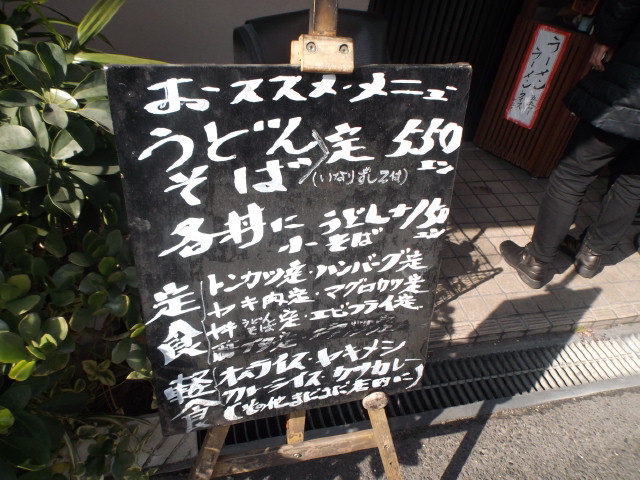 おススメ・メニュ
うどん
そば
定 550
エン
(いなりずし2付)
各丼に うどん
小 そば
+150
エン
定食
トンカツ定・ハンバーグ定
ヤキ肉定・マグロカツ定
丼 うどん
そば 定・エビフライ定
軽食
オムライス・ヤキメシ
カレーライス・
ラーメン
ラーメン